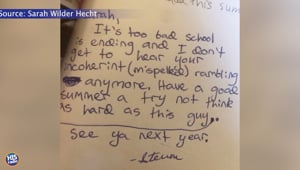 Source: Sarah Wilder Hecht
this sum
rah,
It's too bad school
is ending and I don't
get to hear your
incoherint (m'spelled) rambling
anymore. Have a good
summer a try not think
as hard as this guy..
See ya next year.
-Steven